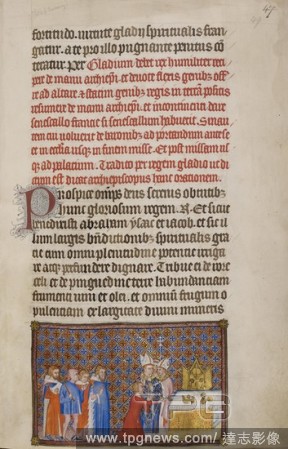 47
fortitudo. virtute gladij spiritualis fran
gatur. a te pro illo pugnante penitus con
teratur. per. Gladium debet rex humiliter reci
pere de manu archiepi. et devote flexis genibus offe
rre ad altare. et statim genibus regis in terram positis
resumere de manu archiepi. et incontinenti dare
senescallo francie si senescallum habuerit. Sin au
tem cui voluerit de baronibus ad portandum ante se
et in ecclesia usque in finem misse. Et post missam us
que ad palacium. Tradito per regem gladio ut di
ctum est dicat archiepiscopus hanc orationem.
Prospice omps deus serenis obtutibus
hunc gloriosum regem. N. Et sicut
benedixisti abraham ysaac et iacob. et sic il
lum largis bndictionibus spiritualis gra
cie cum omni plenitudine potencie irriga
re atque perfundere dignare. Tribue ei de rore
celi et de pinguedine terre habundanciam
frumenti vini et olei. et omnium frugum o
pulenciam ex largitate divini muneris
TPG
www.tpgnews.com / 達志影像